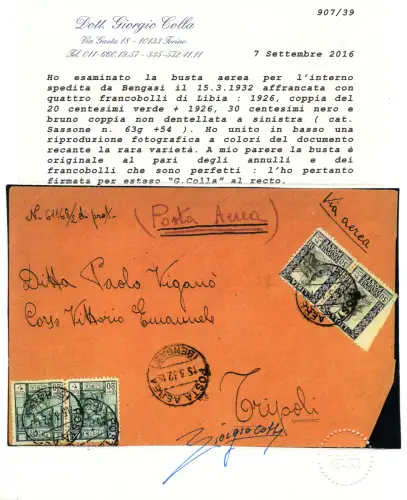 907/39
Dott. Giorgio Colla
Via Gaeta 18 - 10133 Torino
Tel. 011-660.19.57 - 335-572.11.11
7 Settembre 2016
Ho esaminato la busta aerea per l'interno
spedita da Bengasi il 15.3.1932 affrancata con
quattro francobolli di Libia : 1926, coppia del
20 centesimi verde + 1926, 30 centesimi nero e
bruno coppia non dentellata a sinistra ( cat.
Sassone n. 63g +54 ). Ho unito in basso una
riproduzione fotografica a colori del documento
recante la rara varietà. A mio parere la busta è
originale al pari degli annulli e dei
francobolli che sono perfetti : l'ho pertanto
firmata per esteso "G.Colla" al recto.
(Posta Aerea)
Via aerea
Ditta Paolo Viganò
Corso Vittorio Emanuele
POSTA AEREA
15.3.32
(BENGASI)
Tripoli
Giorgio Colla